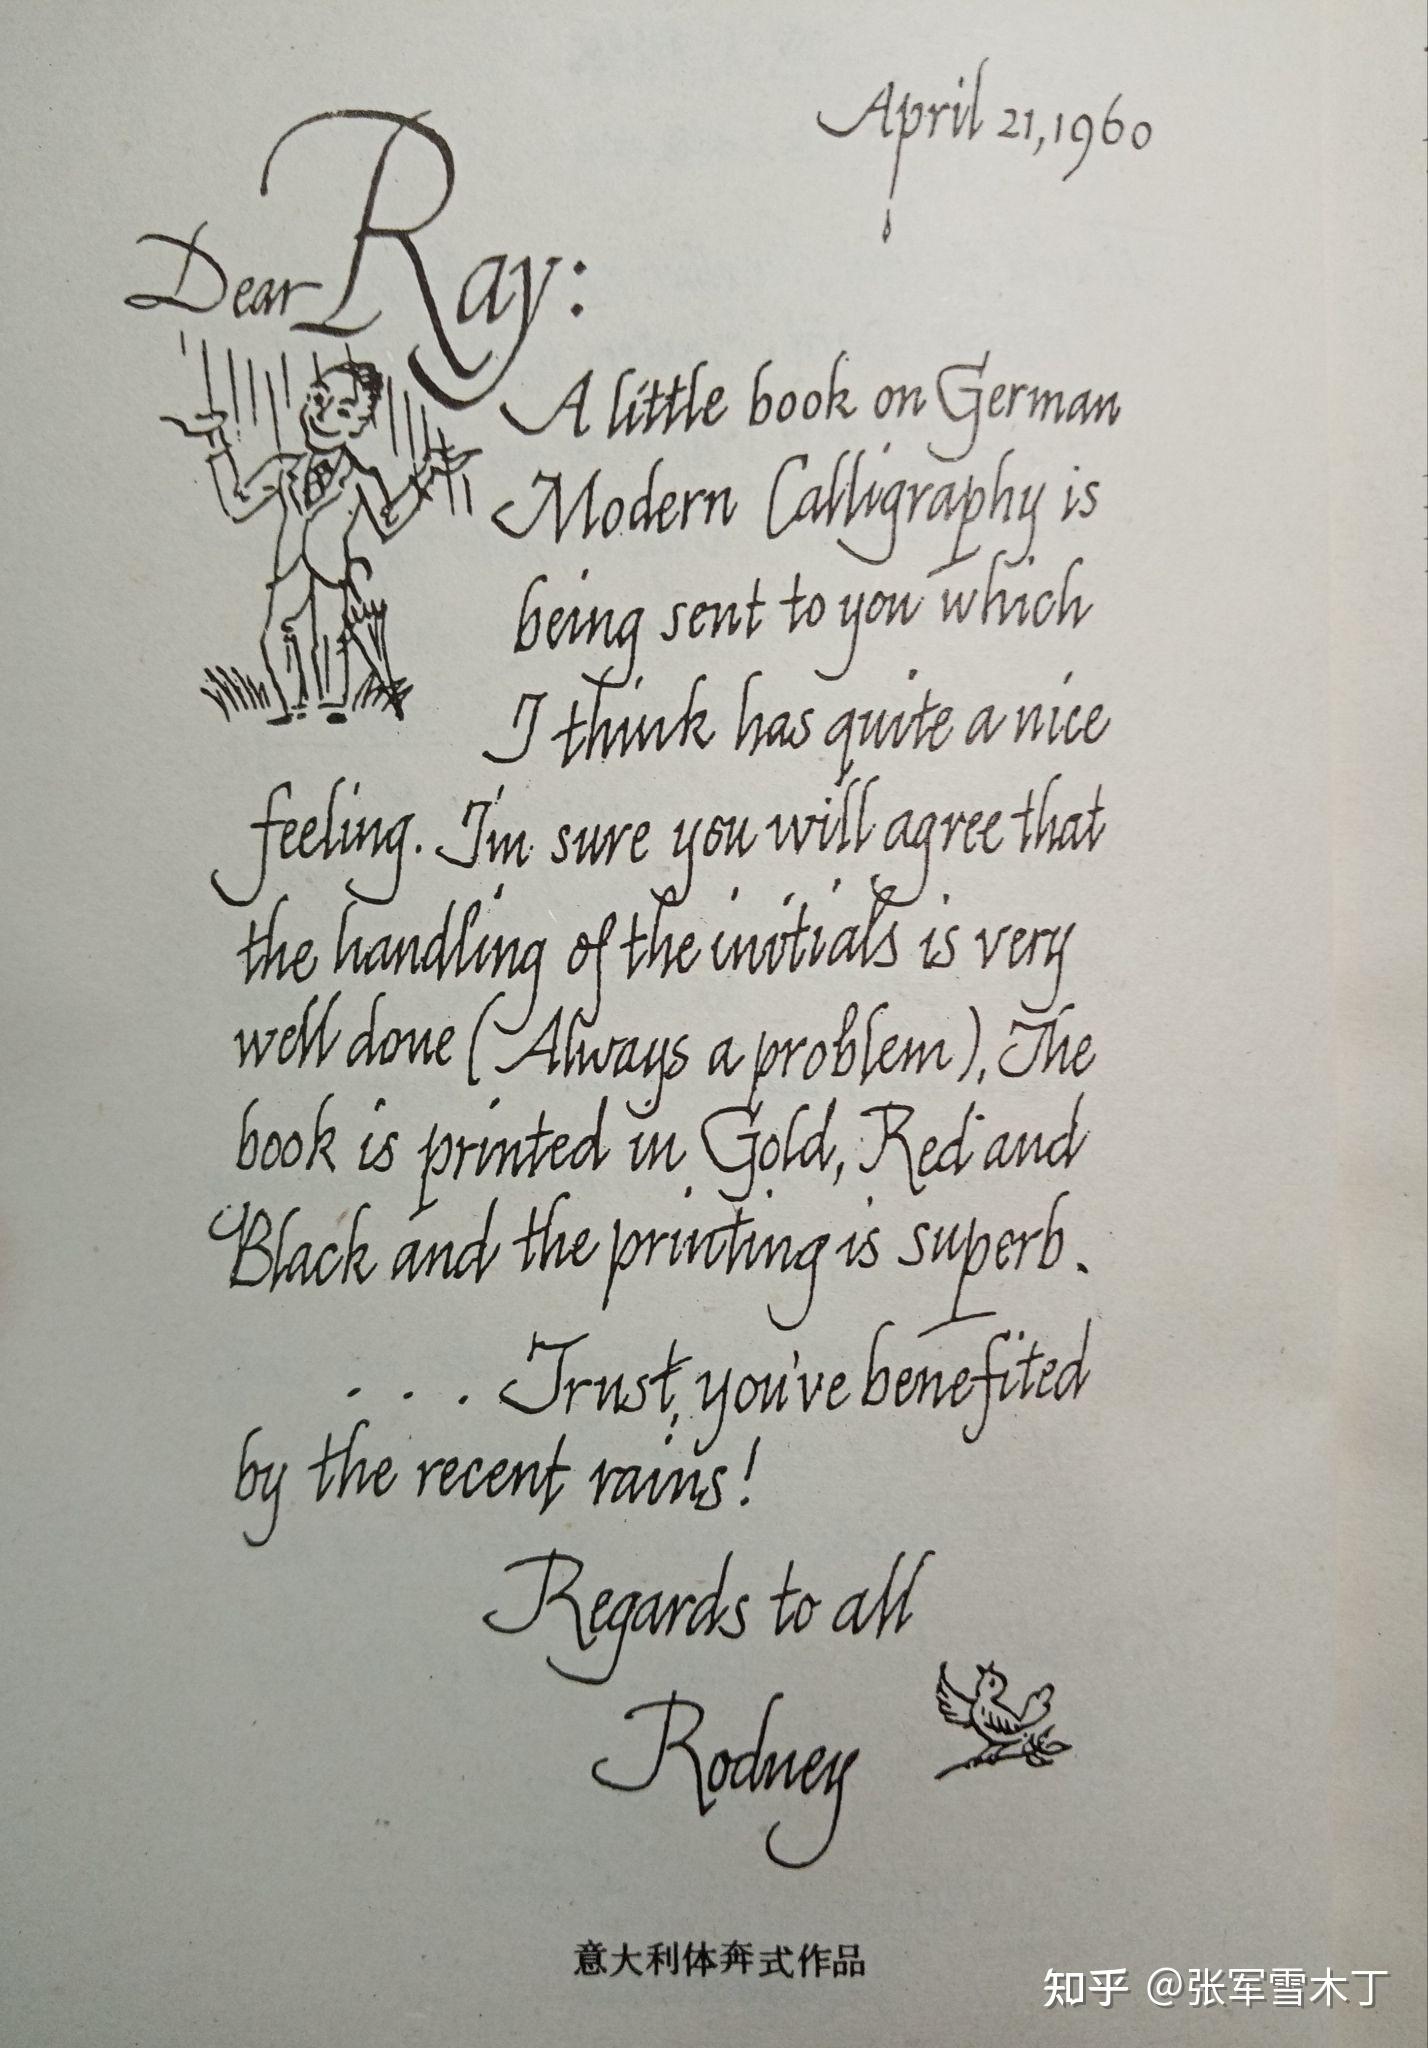 April 21, 1960
Dear Ray:
A little book on German
Modern Calligraphy is
being sent to you which
I think has quite a nice
feeling. I'm sure you will agree that
the handling of the initials is very
well done (Always a problem). The
book is printed in Gold, Red and
Black and the printing is superb.
. . . Trust, you've benefited
by the recent rains!
Regards to all
Rodney
意大利体奔式作品
知乎 @张军雪木丁